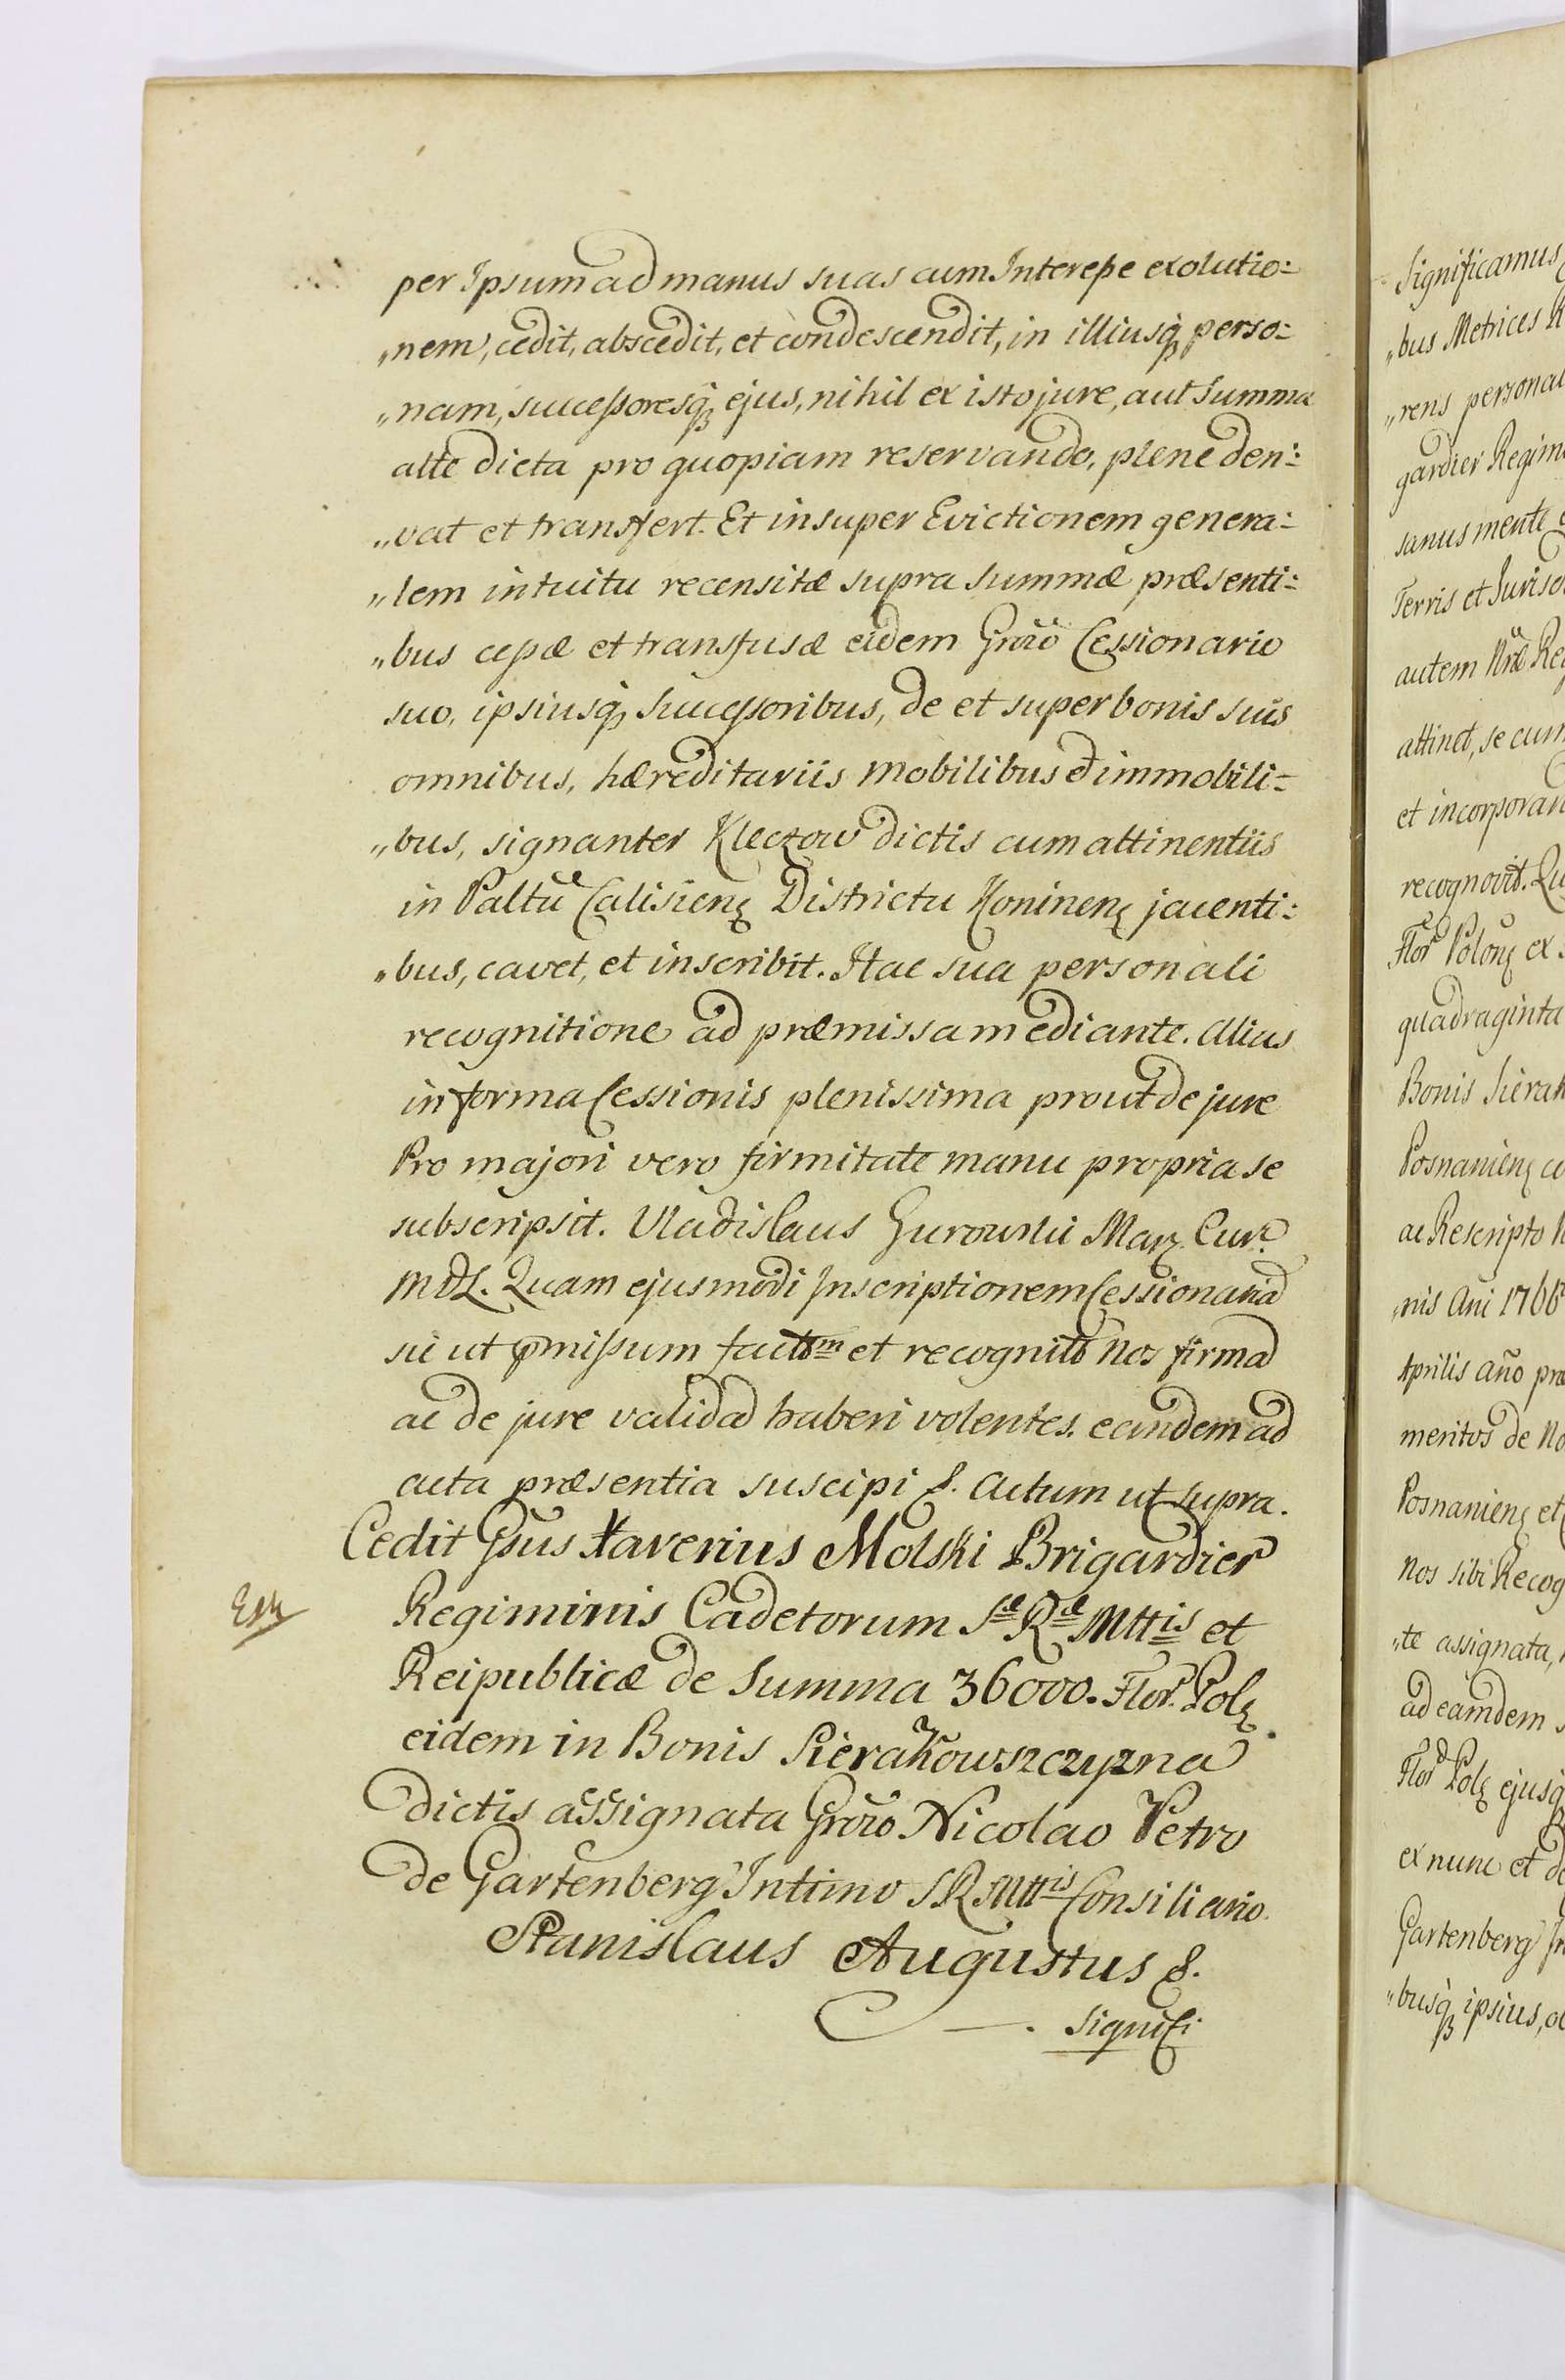 per Ipsum ad manus suas cum Interesse exolutio=
„nem, cedit, abscedit, et condescendit, in illiusq, perso=
„nam, successoresq, ejus, nihil ex isto jure, aut Summa
alte dicta pro quopiam reservando, plene deri=
„vat et transfert. Et insuper Evictionem genera=
„lem intuitu recensitæ supra Summæ præsenti=
„bus cessæ et transfusæ eidem Grõso Cessionario
suo, ipsiusq, Successoribus, de et super bonis suis
omnibus, hæreditariis Mobilibus et immobili=
„bus, signanter Kleczow dictis cum attinentiis
in Paltũ Calisien Districtu Koninen jacenti=
„bus, cavet, et inscribit. Hac sua personali
recognitione ad præmissa mediante. Alias
in forma Cessionis plenissima prout de jure
Pro majori vero firmitate manu propria se
subscripsit. Vladislaus Gurowski Marz Cur.
MDL. Quam ejusmodi Inscriptionem Cessionariã
sic ut p̃missum factm et recognitũ Nos firmã
ac de jure validã haberi volentes. eandem ad
acta præsentia suscipi &. Actum ut supra.
Cedit Gsus Xaverius Molski Brigardier
Exh
Regiminis Cadetorum Sæ Ræ Mttis et
Reipublicæ de Summa 36000. Flor. Pol
eidem in Bonis Sierakowszczyzna
dictis assignata Grõso Nicolao Petro
de Gartenberg Intimo SR Mttis Consiliario.
Stanislaus Augustus &.
Signifi
Significamus
„bus Metrices R
„rens personal
gardier Regim
sanus mente
Terris et Juris
autem Nræ Re
attinet, se cum
et incorporan
recognovit. Qu
Flor Polon ex
quadraginta
Bonis Sierak
Posnanien co
ac Rescripto
„nis Añi 1766
Aprilis año præ
meritos de No
Posnanien et
Nos sibi Recog
„te assignata,
ad eamdem
Flor Pol ejusq
ex nunc et de
Gartenberg In
„busq, ipsius,